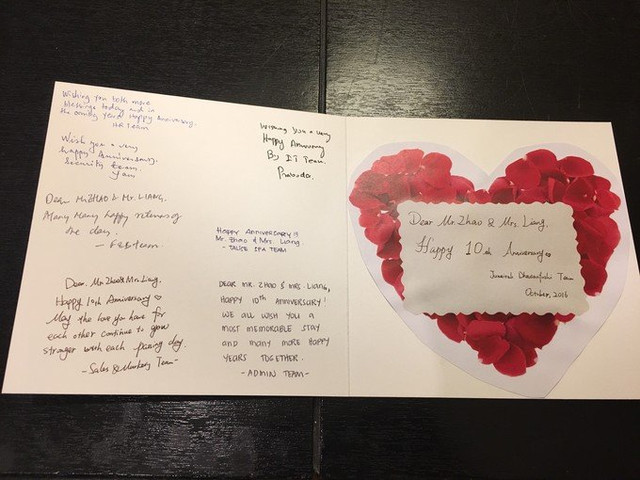 Wishing you both more
blessings today and in
the coming years Happy Anniversary.
HR Team
Wish you a very
happy Anniversary.
Security team.
Wishing you a very
Happy Anniversary
By IT Team.
Dear Mr. ZHAO & Mr. LIANG.
Many Many happy returns of
the day.
- F&B team.
Happy Anniversary!!
Mr. Zhao & Mrs. Liang.
- TALISE SPA TEAM
Dear, Mr. Zhao & Mrs. Liang,
Happy 10th Anniversary
May the love you have for
each other continue to grow
stronger with each passing day.
- Sales & Marketing Team -
DEAR MR. ZHAO & MRS. LIANG,
HAPPY 10TH ANNIVERSARY!
WE ALL WISH YOU A
MOST MEMORABLE STAY
AND MANY MORE HAPPY
YEARS TOGETHER.
- ADMIN TEAM -
Dear Mr. Zhao & Mrs. Liang,
Happy 10th Anniversary
Jumeirah Dhevanafushi Team
October, 2016